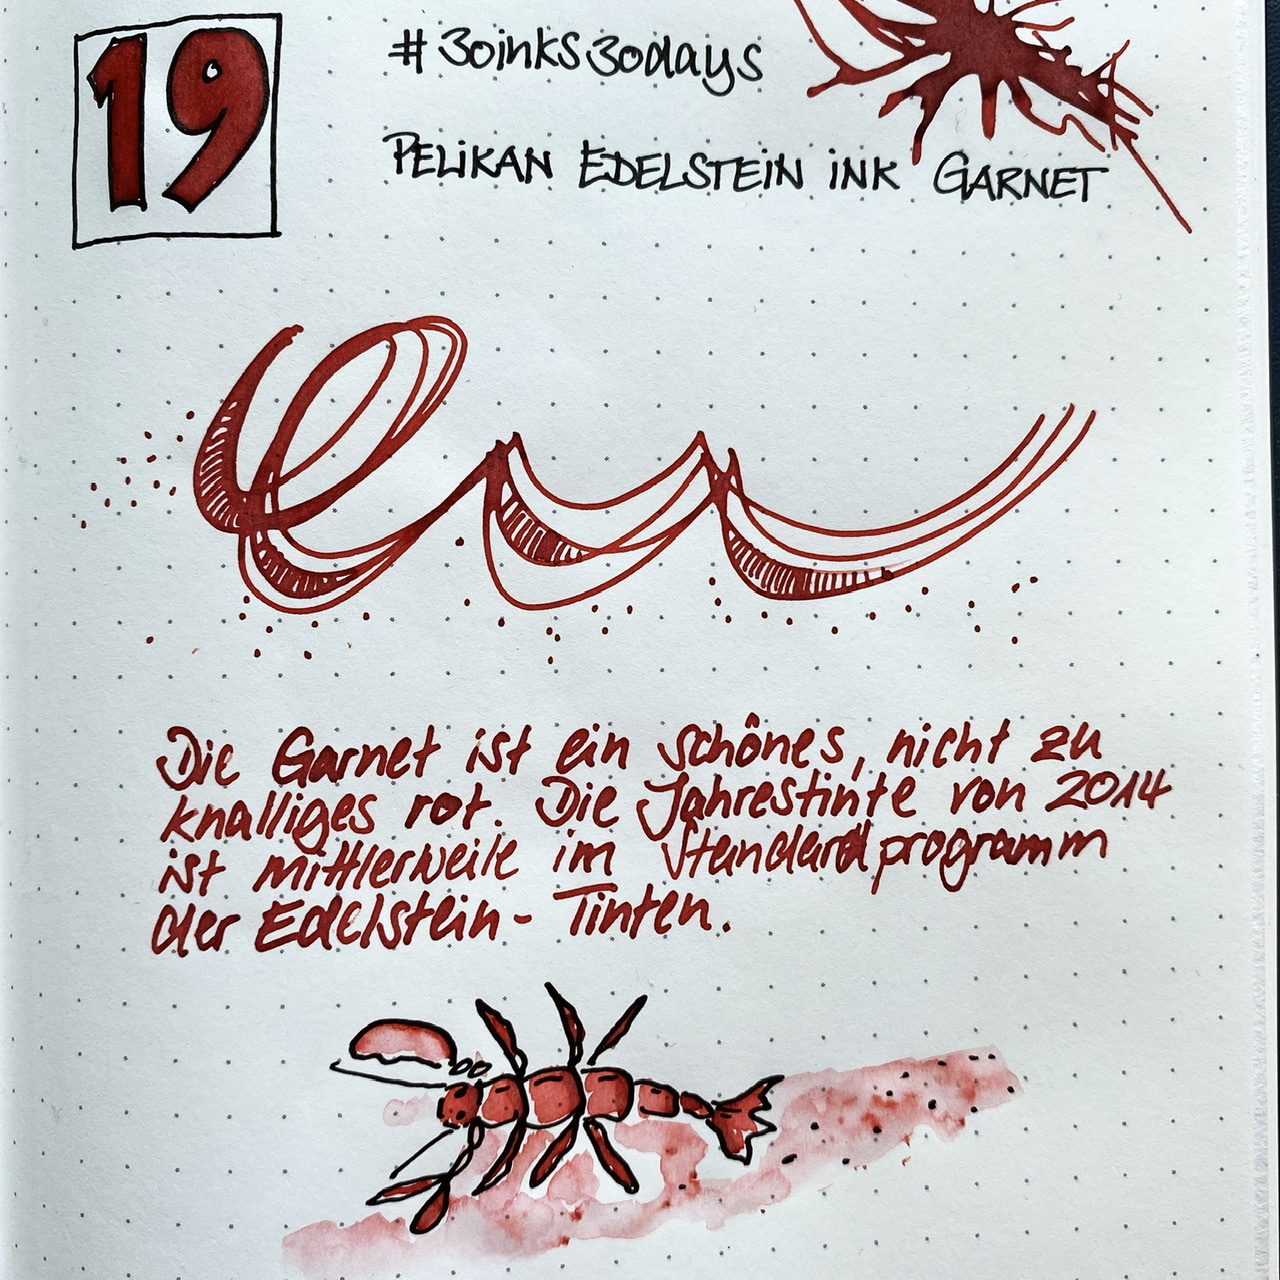 19
#30inks30days
PELIKAN EDELSTEIN INK GARNET
Die Garnet ist ein schönes, nicht zu
knalliges rot. Die Jahrestinte von 2014
ist mittlerweile im Standardprogramm
der Edelstein-Tinten.